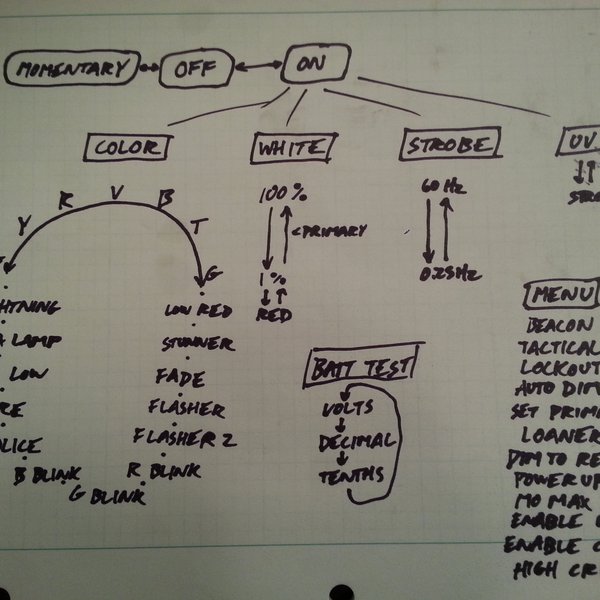 MOMENTARY OFF ON
COLOR WHITE STROBE UV
Y R V B T G
LIGHTNING
LAMP
LOW
POLICE
B BLINK
G BLINK
R BLINK
FLASHER 2
FLASHER
FADE
STUNNER
LOW RED
100%
<PRIMARY
1%
RED
60 Hz
0.25Hz
BATT TEST
VOLTS
DECIMAL
TENTHS
MENU
BEACON
TACTICAL
LOCKOUT
AUTO DIM
SET PRIM
LOANER
DIM TO RE
POWER UP
MO MAX
ENABLE
ENABLE
HIGH CR